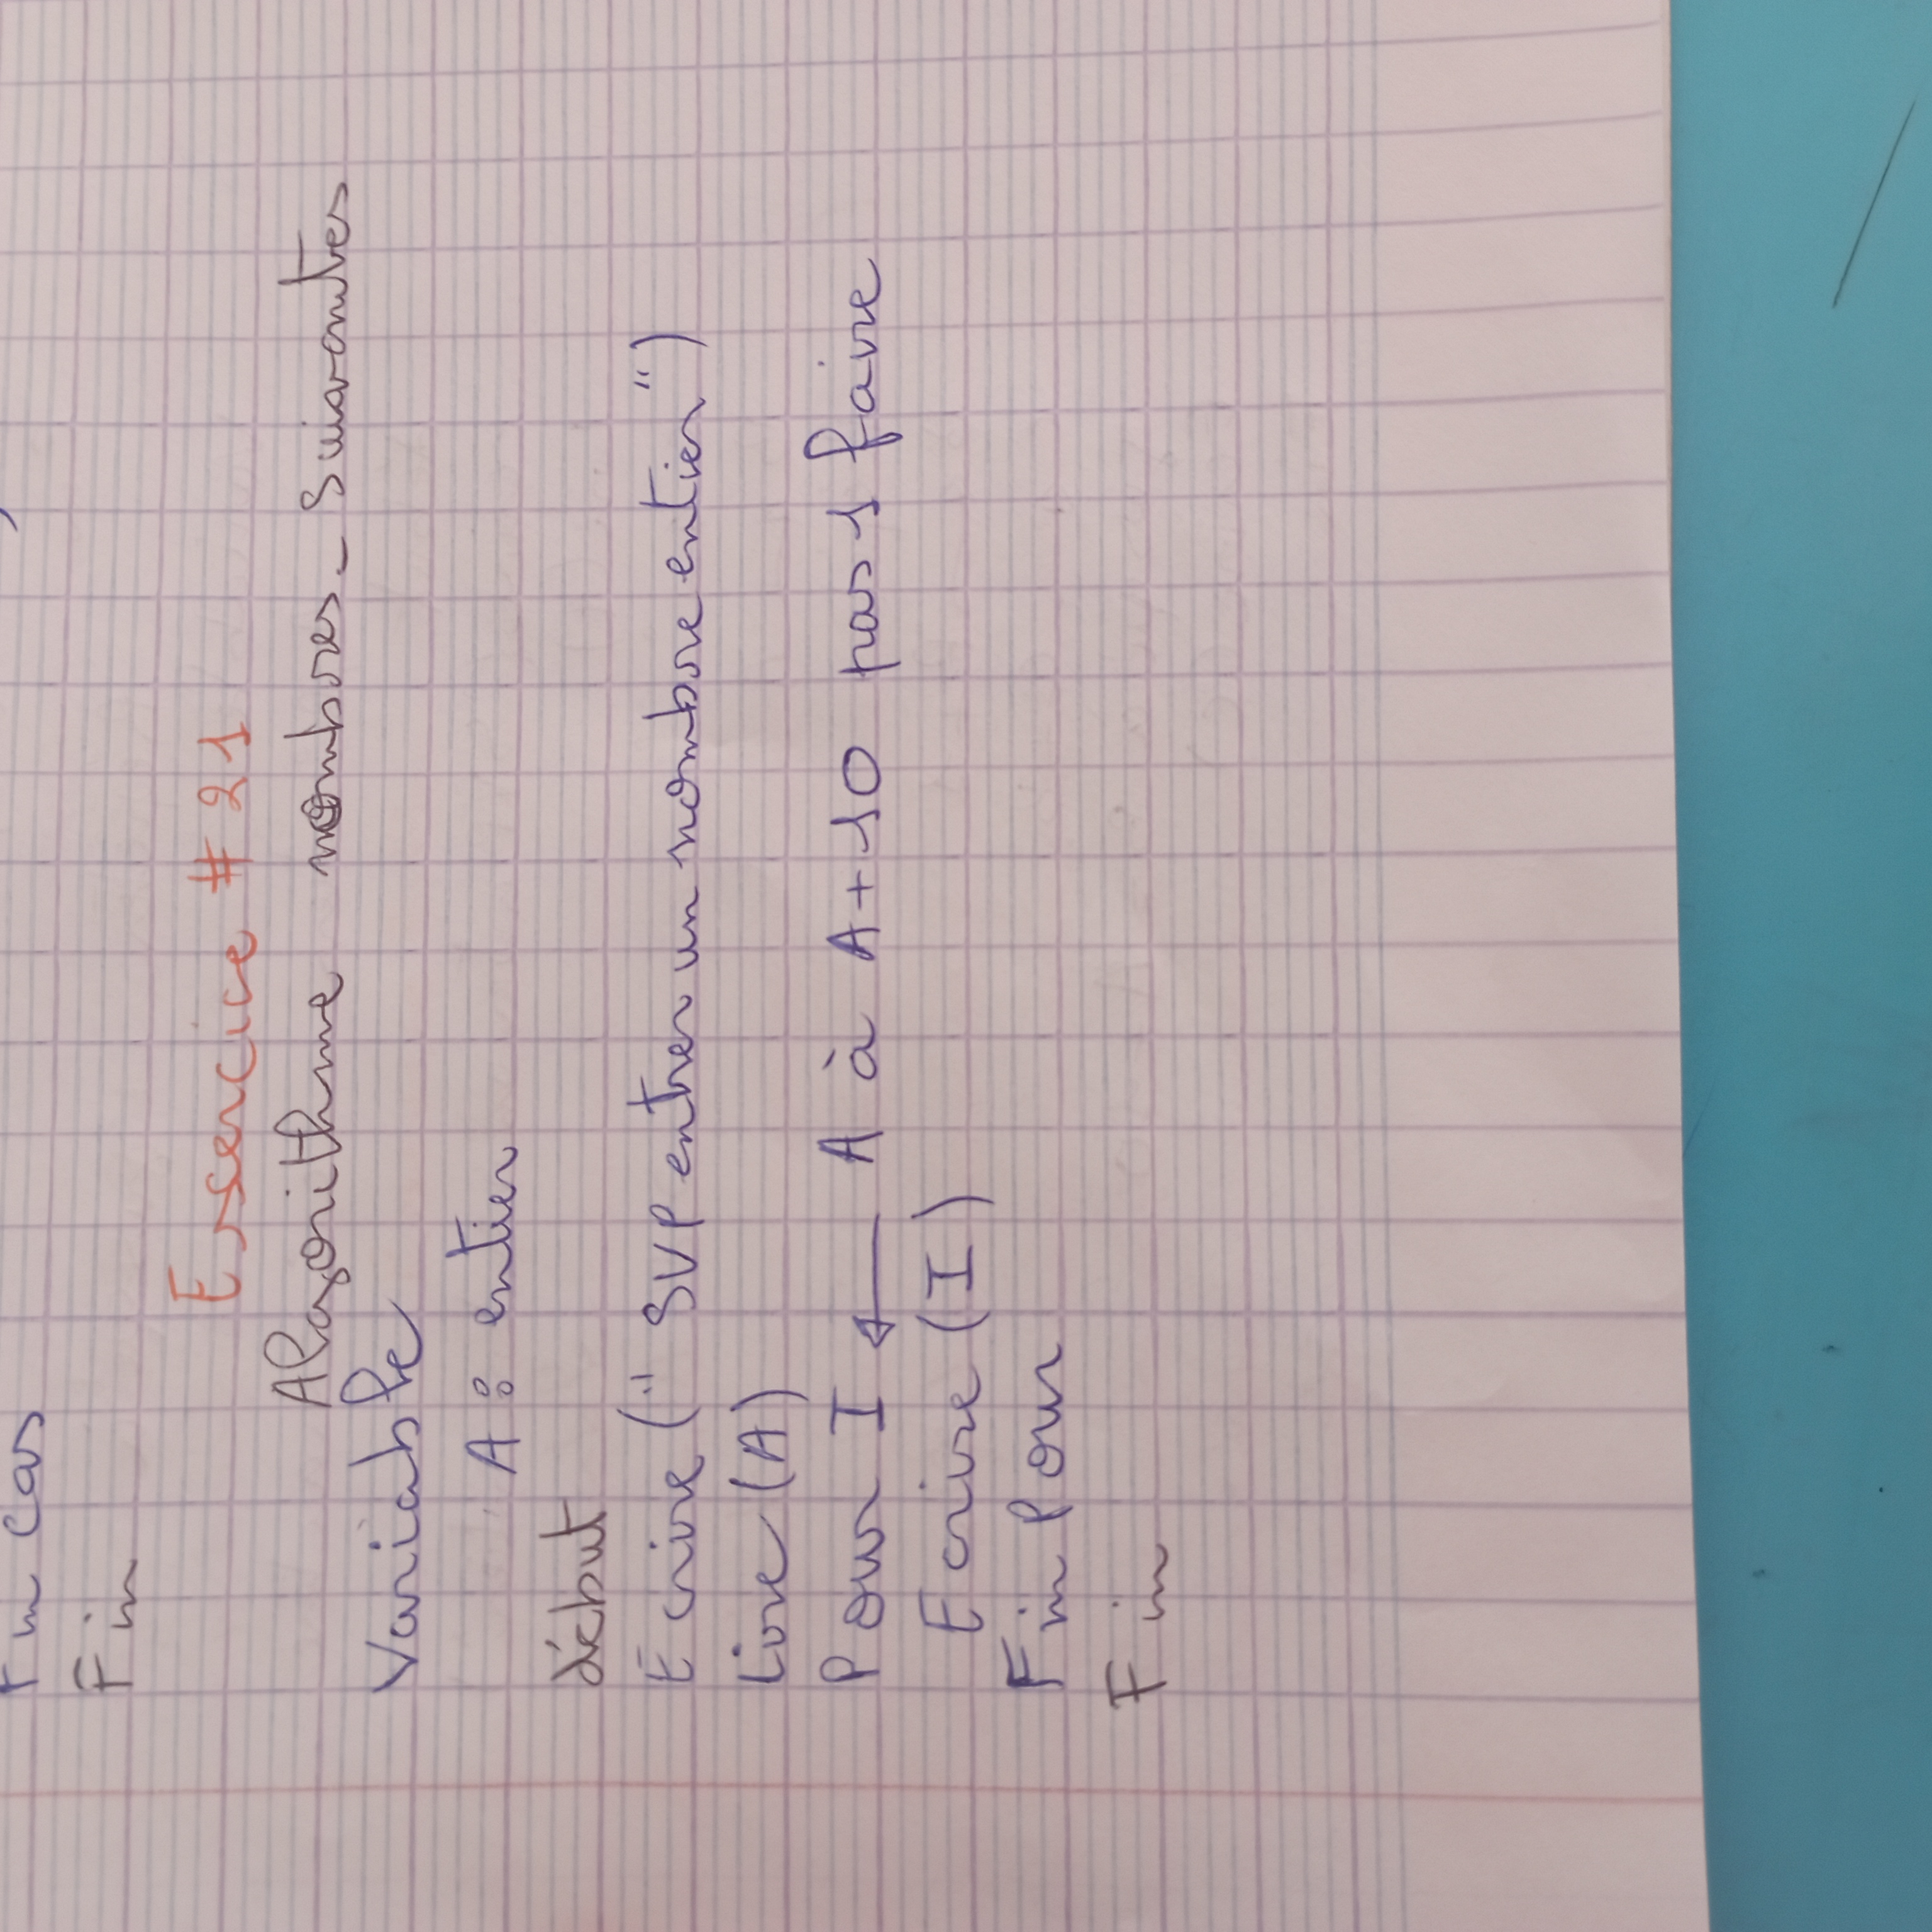 Fin cas
Fin
Exercice # 21
Algorithme nombres_Suivantes
Variable
A : entier
début
Ecrire (" SVP entrer un nombre entier ")
Lire (A)
Pour I ← A à A+10 pas 1 faire
Ecrire (I)
Fin Pour
Fin